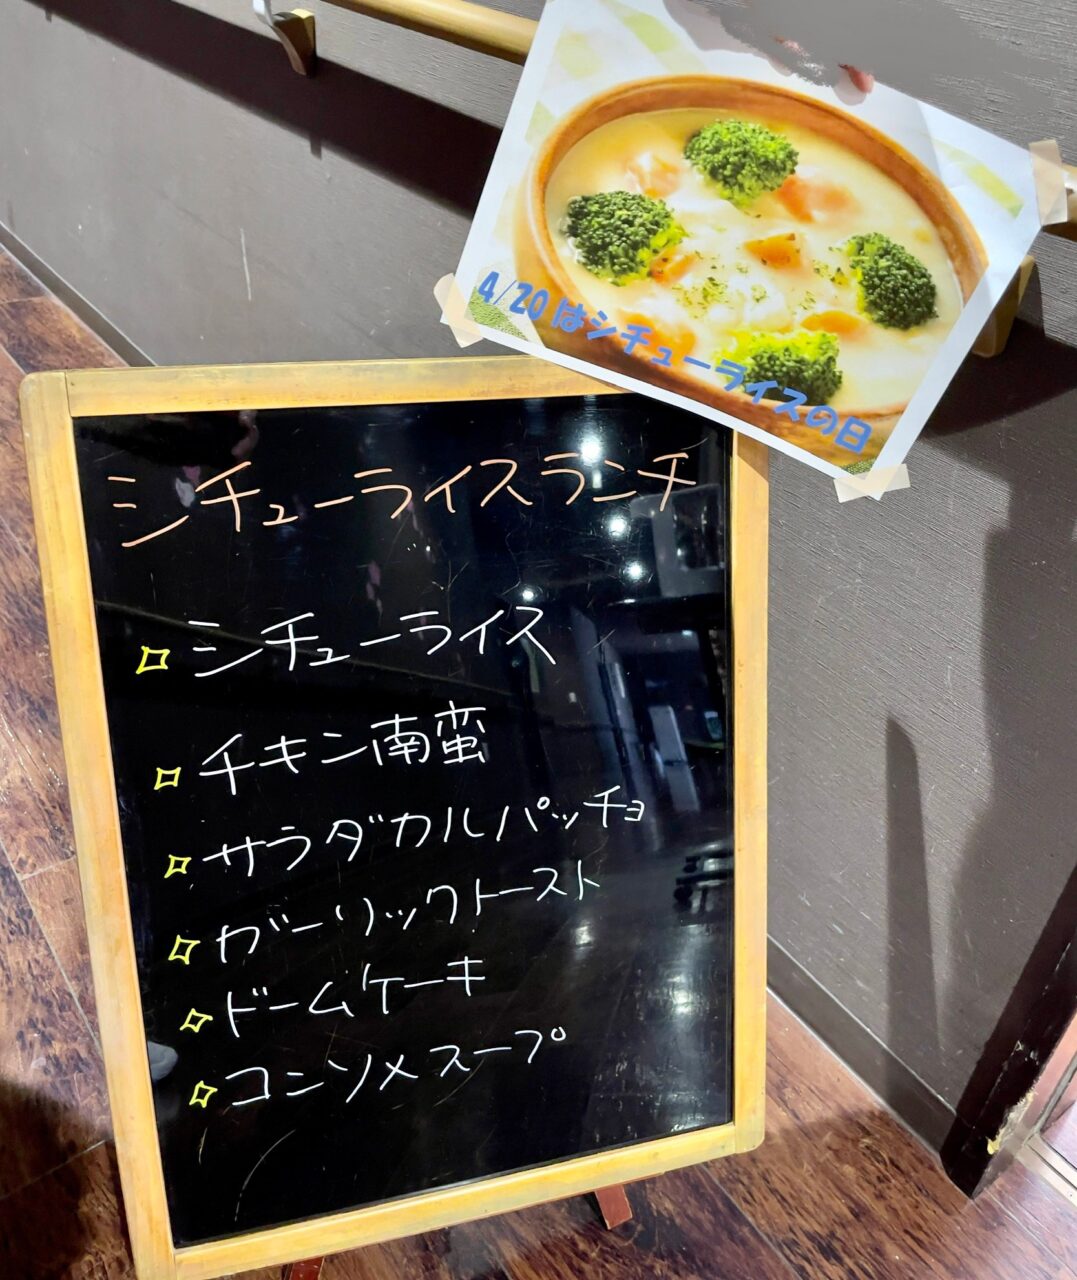 4/20はシチューライスの日
シチューライスランチ
シチューライス
チキン南蛮
サラダカルパッチョ
ガーリックトースト
ドームケーキ
コンソメスープ